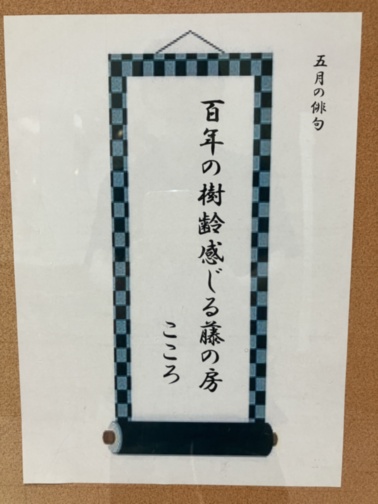 五月の俳句
百年の樹齢感じる藤の房
こころ